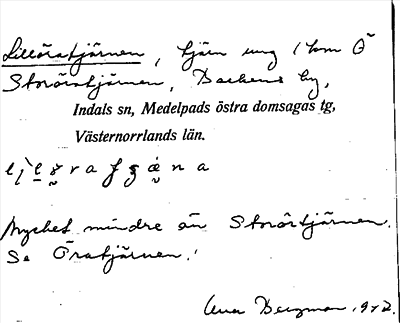 Lillöratjärnen, tjärn ung 1 km Ö
Storöratjärnen, Backens by,
Indals sn, Medelpads östra domsagas tg,
Västernorrlands län.
Mycket mindre än Storörtjärnen.
Se Öratjärnen.
Bergman, 1942.